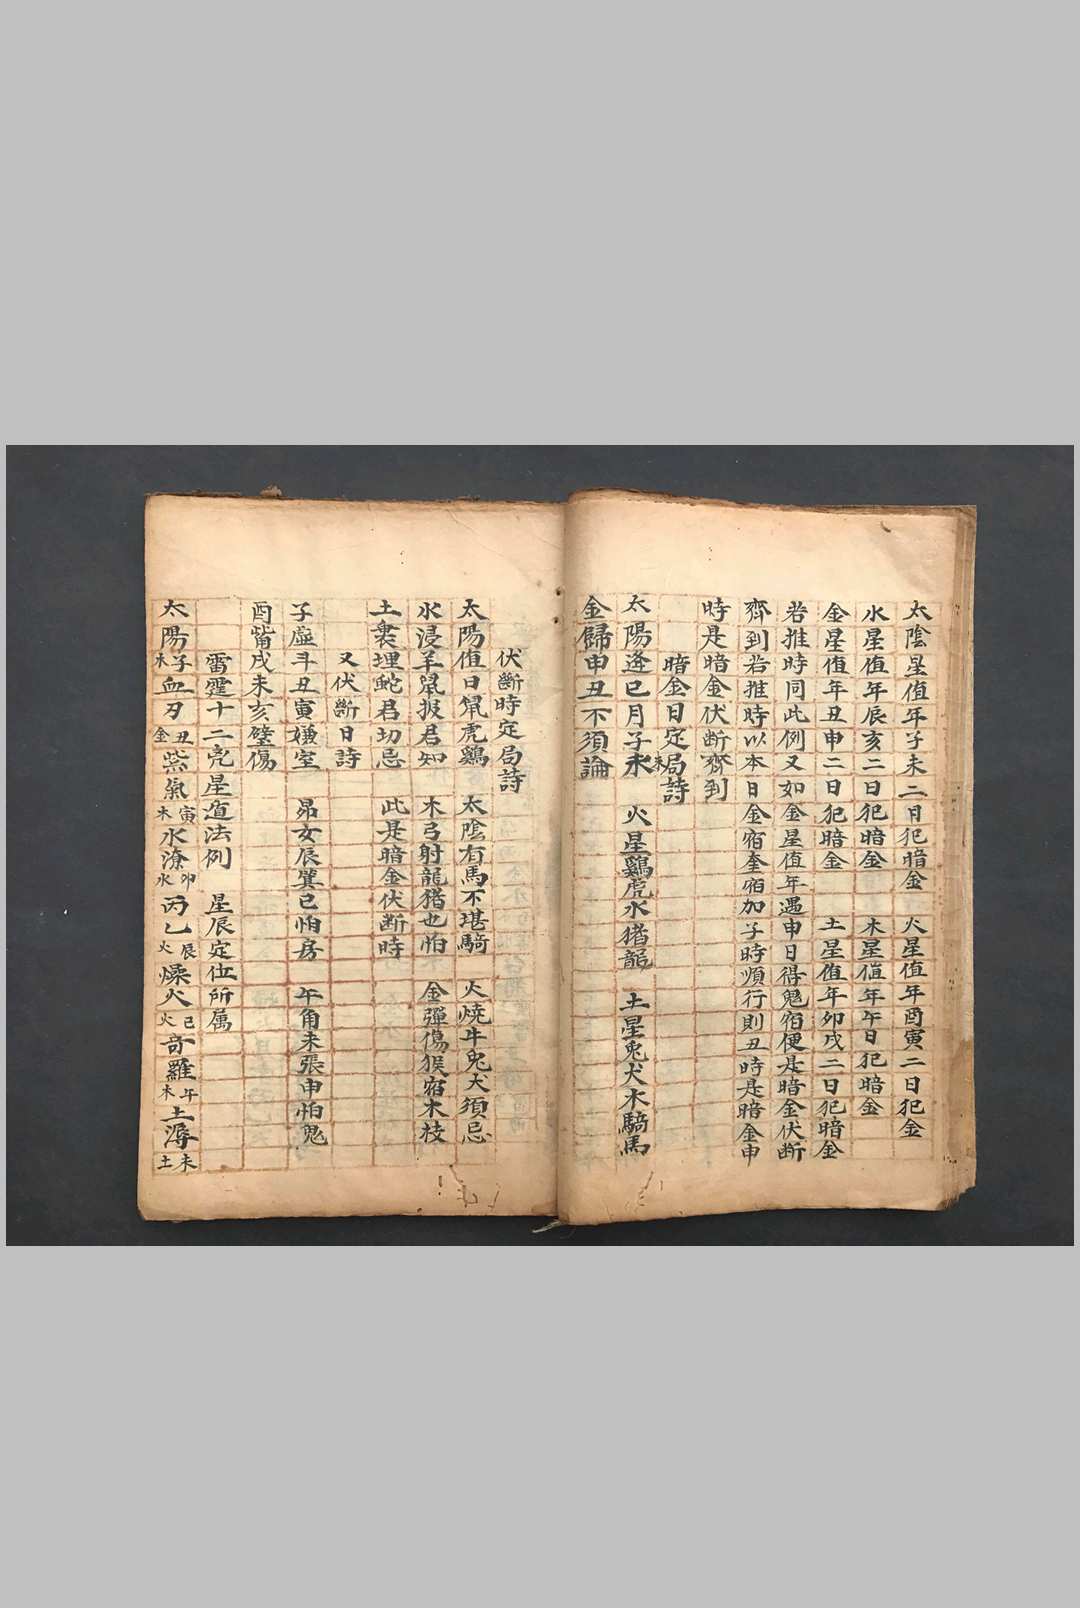 太陰星值年子未二日犯暗金　火星值年酉寅二日犯金
水星值年辰亥二日犯暗金　木星值年午日犯暗金
金星值年丑申二日犯暗金　土星值年卯戌二日犯暗金
若推時同此例又如金星值年遇申日得鬼宿便是暗金伏断
齊到若推時以本日金宿奎宿加子時順行則丑時是暗金申
時是暗金伏断齊到
暗金日定局詩
太陽逢巳月子未　火星鷄虎水猪龍　土星兎犬木騎馬
金歸申丑不須論
伏斷時定局詩
太陽值日鼠虎鷄　太陰有馬不堪騎　火燒牛兎犬須忌
水浸羊鼠报君知　木弓射龍猪也怕　金彈傷猴宿木枝
土裏埋蛇君切忌　此是暗金伏断時
又伏斷日詩
子虛斗丑寅嫌室　昂女辰箕巳怕房　午角未張申怕鬼
酉觜戌未亥壁傷
雷霆十二亮星道法例　星辰定位所属
太陽子木血刃丑金紫氣寅木水潦卯水丙乙辰火燥火巳火奇羅午木土潯未土